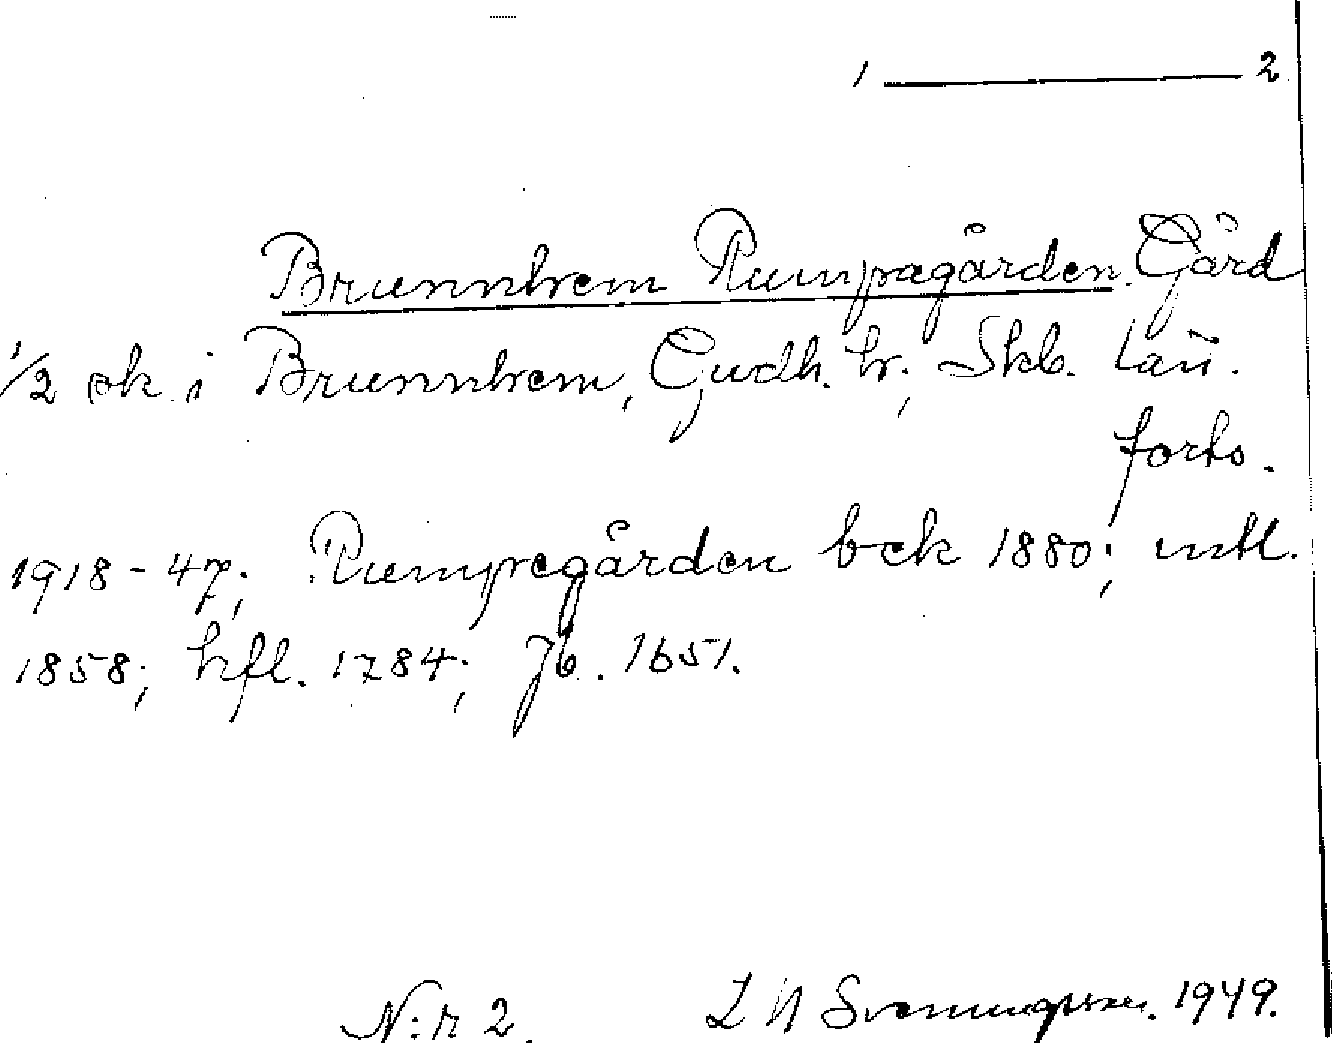 1 — 2
Brunnhem Rumpagården. Gård
1/2 sk. i Brunnhem, Gudh. hr; Skb. län.
forts.
1918-47; Rumpegården bek 1880; mtl.
1858; hfl. 1784; Jb. 1651.
N:r 2. L N 1949.